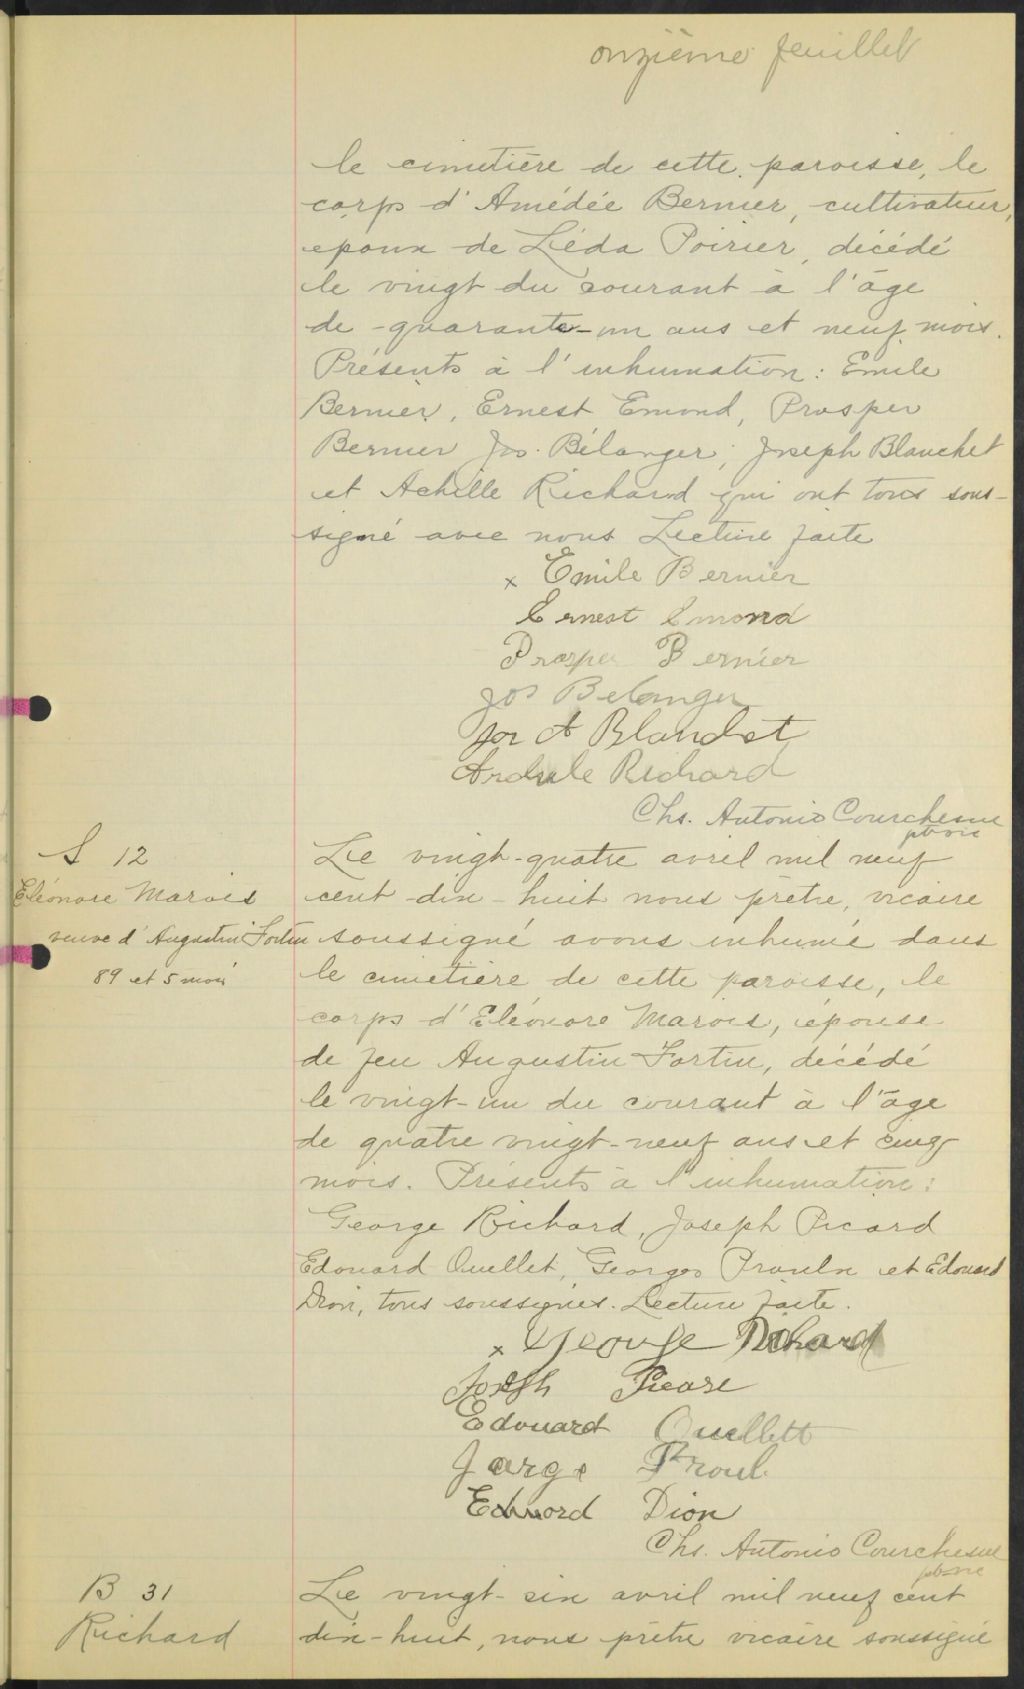 onzième feuillet
le cimetière de cette paroisse, le
corps d'Amédée Bernier, cultivateur,
epoux de Léda Poirier, décédé
le vingt du courant à l'âge
de quarante-un ans et neuf mois.
Présents à l'inhumation: Emile
Bernier, Ernest Emond, Prosper
Bernier Jos. Bélanger, Joseph Blanchet
et Achille Richard qui ont tous sous-
signé avec nous Lecture faite
x Emile Bernier
Ernest Emond
Prosper Bernier
Jos Belanger
Jos A Blanchet
Richard
Chs. Antonio Courchesne
ptre vic
S 12
Eléonore Marois
veuve d'Augustin Fortin
89 et 5 mois
Le vingt-quatre avril mil neuf
cent dix-huit nous prêtre, vicaire
soussigné avons inhumé dans
le cimetière de cette paroisse, le
corps d'Eléonore Marois, épouse
de feu Augustin Fortin, décédé
le vingt-un du courant à l'âge
de quatre vingt-neuf ans et cinq
mois. Présents à l'inhumation:
George Richard, Joseph Picard
Edouard Ouellet, Georges Proulx et Edouard
Dion, tous soussignés. Lecture faite.
x George Richard
Joseph
Edouard Ouellett
Jarge Proul
Edward Dion
Chs. Antonio Courchesne
ptre vic
B 31
Richard
Le vingt-six avril mil neuf cent
dix-huit, nous prêtre vicaire soussigné